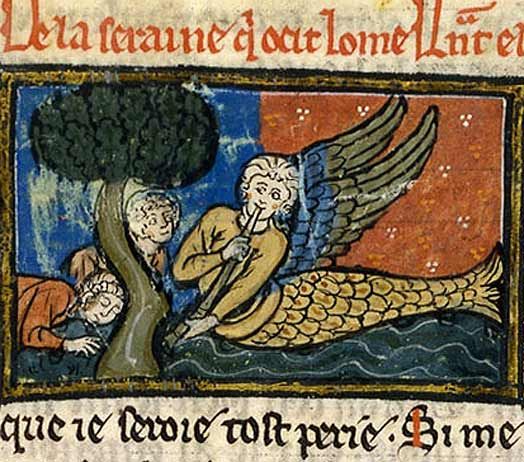 De la seraine q̓ ocit lome
que ie seroie tost perie. Si me